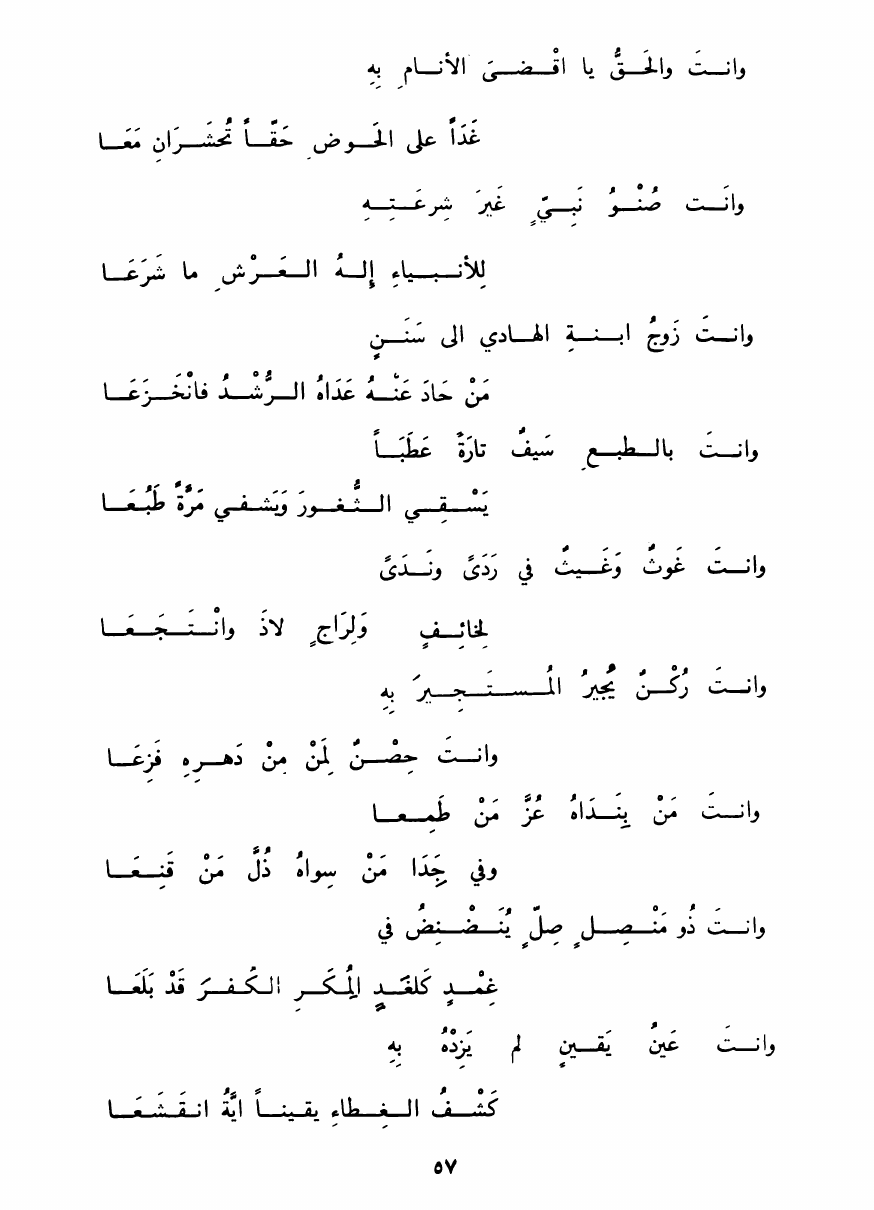 وانتَ والحَقُّ يا اقْضىَ الأنامِ بِهِ
غَدَاً على الحَوضِ حَقّاً تُحْشَرَانِ مَعَا
وانَت صُنْوُ نَبيٍّ غيرَ شرعَتِهِ
لِلأنبياءِ إلهُ العَرْشِ ما شَرَعَا
وانتَ زَوجُ ابنةِ الهادي الى سَنَنٍ
مَنْ حَادَ عَنْهُ عَدَاهُ الرُّشْدُ فانْخَزَعَا
وانتَ بالطبعِ سَيفٌ تارَةً عَطَبَاً
يَسْقي الثُّغورَ وَيَشفي مَرَّةً طَبُعَا
وانتَ غَوثٌ وَغَيثٌ في رَدَىً ونَدَىً
لخائِفٍ وَلِرَاجٍ لاذَ وانْتَجَعَا
وانتَ رُكْنٌ يُجيرُ المُستَجِيرَ بِهِ
وانتَ حِصْنٌ لِمَنْ مِنْ دَهرِهِ فَزِعَا
وانتَ مَنْ بِنِدَاهُ عُزَّ مَنْ طَمِعا
وفي جِدَا مَنْ سِواهُ ذُلَّ مَنْ قَنِعَا
وانتَ ذُو مَنْصِلٍ صِلٍّ يُنَضْنِضُ في
غِمْدٍ كَلغَدٍ المُِكَرِ الكُفرَ قَدْ بَلَعَا
وانتَ عَينُ يَقينٍ لم يَزِدْهُ بِهِ
كَشْفُ الغِطاءِ يقيناً ايَّةُ انقَشَعَا
٥٧